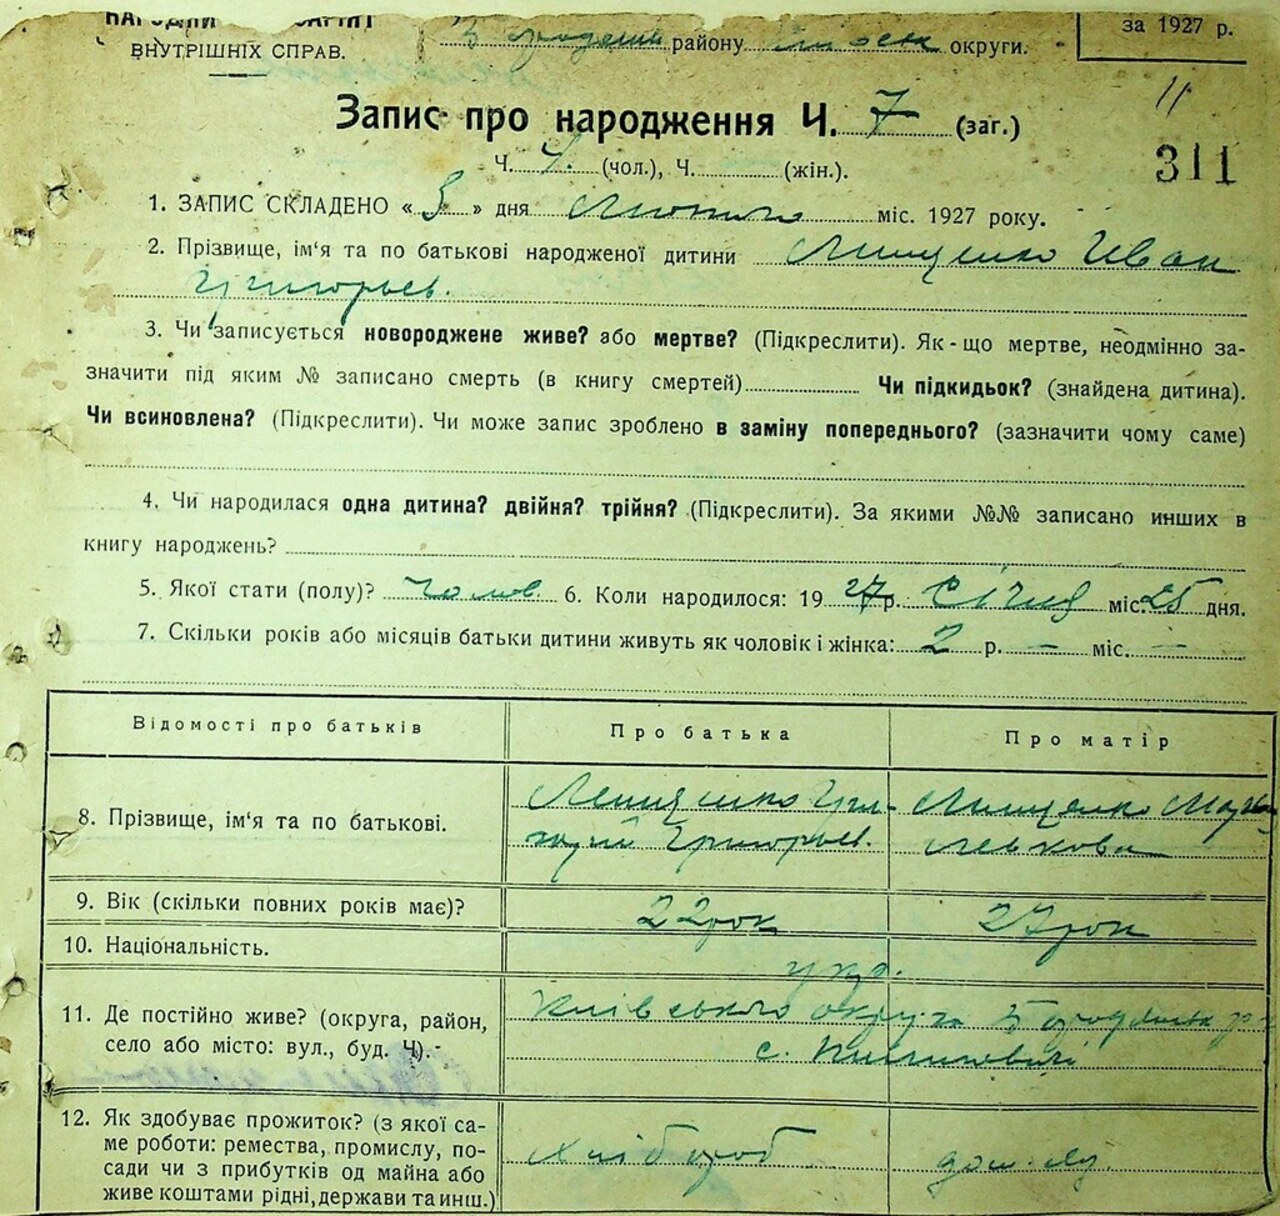 ВНУТРІШНІХ СПРАВ.
району округи.
за 1927 р.
11
Запис про народження Ч. 7 (заг.)
Ч. 4 (чол.), Ч. (жін.).
311
1. ЗАПИС СКЛАДЕНО « 3 » дня Лютого міс. 1927 року.
2. Прізвище, ім'я та по батькові народженої дитини Лищенко Иван
Григорьев.
3. Чи записується новороджене живе? або мертве? (Підкреслити). Як-що мертве, неодмінно за-
значити під яким № записано смерть (в книгу смертей) Чи підкидьок? (знайдена дитина).
Чи всиновлена? (Підкреслити). Чи може запис зроблено в заміну попереднього? (зазначити чому саме)
4. Чи народилася одна дитина? двійня? трійня? (Підкреслити). За якими №№ записано инших в
книгу народжень?
5. Якої стати (полу)? чолов. 6. Коли народилося: 19 27 р. Січня міс. 25 дня.
7. Скільки років або місяців батьки дитини живуть як чоловік і жінка: 2 р. — міс. —
Відомості про батьків Про батька Про матір
8. Прізвище, ім'я та по батькові.
Лищенко Гри-
горій Григорьев.
Лищенко
Левкова
9. Вік (скільки повних років має)? 22 рок 27 рок
10. Національність. укр.
11. Де постійно живе? (округа, район,
село або місто: вул., буд. Ч).
Київського округа Бородянськ
с.
12. Як здобуває прожиток? (з якої са-
ме роботи: ремества, промислу, по-
сади чи з прибутків од майна або
живе коштами рідні, держави та инш.)
хлібороб
дом.